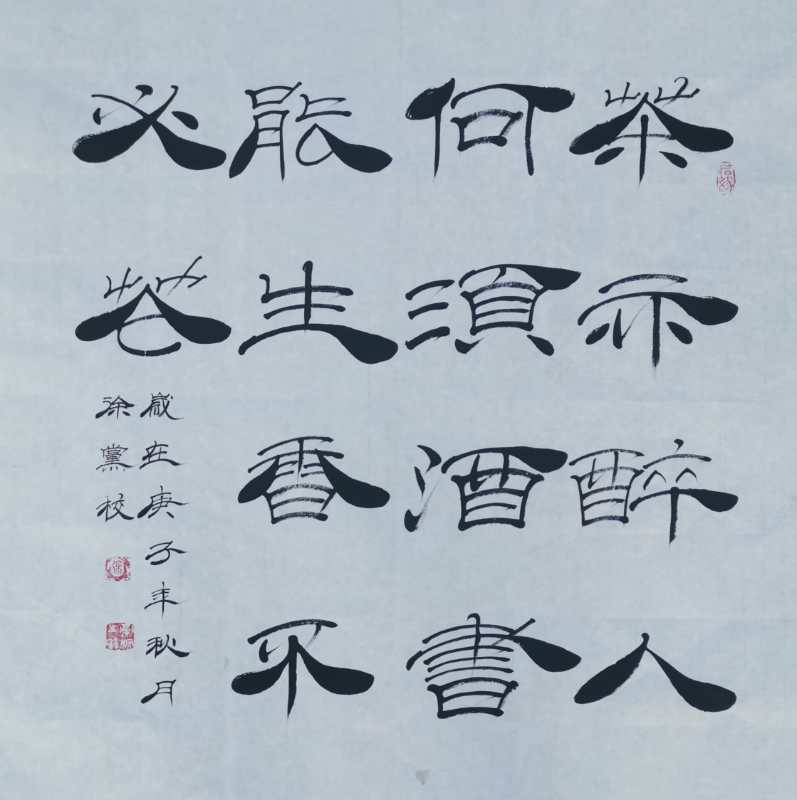 茶亦醉人
何須酒書
能生香不
必花
歲在庚子年秋月
徐黨校